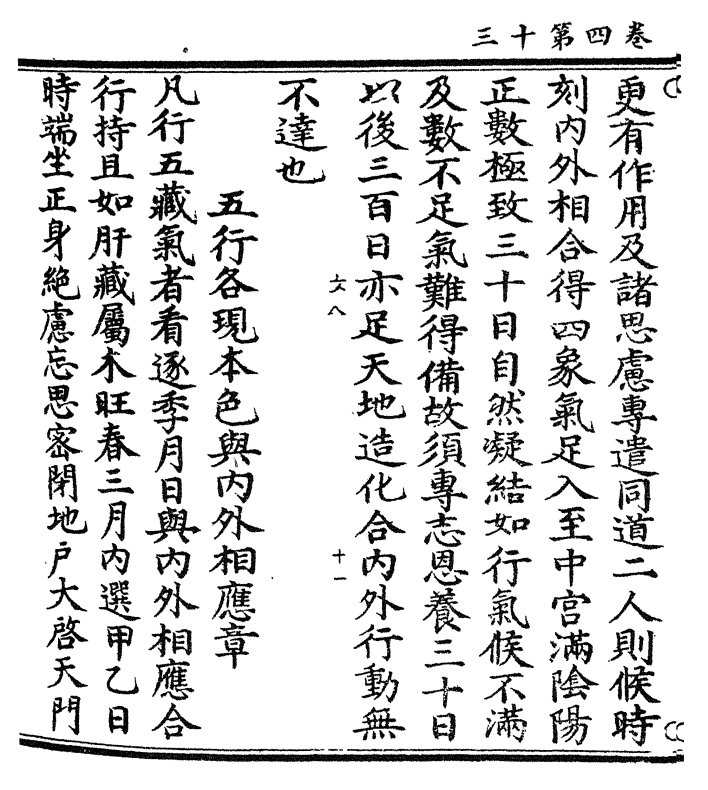 卷四第十三
更有作用及諸思慮專遣同道二人則候時
刻內外相合得四象氣足入至中宮滿陰陽
正數極致三十日自然凝結如行氣候不滿
及數不足氣難得備故須專志恩養三十日
以後三百日亦足天地造化合內外行動無
六八
十一
不達也
五行各現本色與內外相應章
凡行五藏氣者看逐季月日與內外相應合
行持且如肝藏屬木旺春三月內選甲乙日
時端坐正身絕慮忘思密閉地户大啓天門